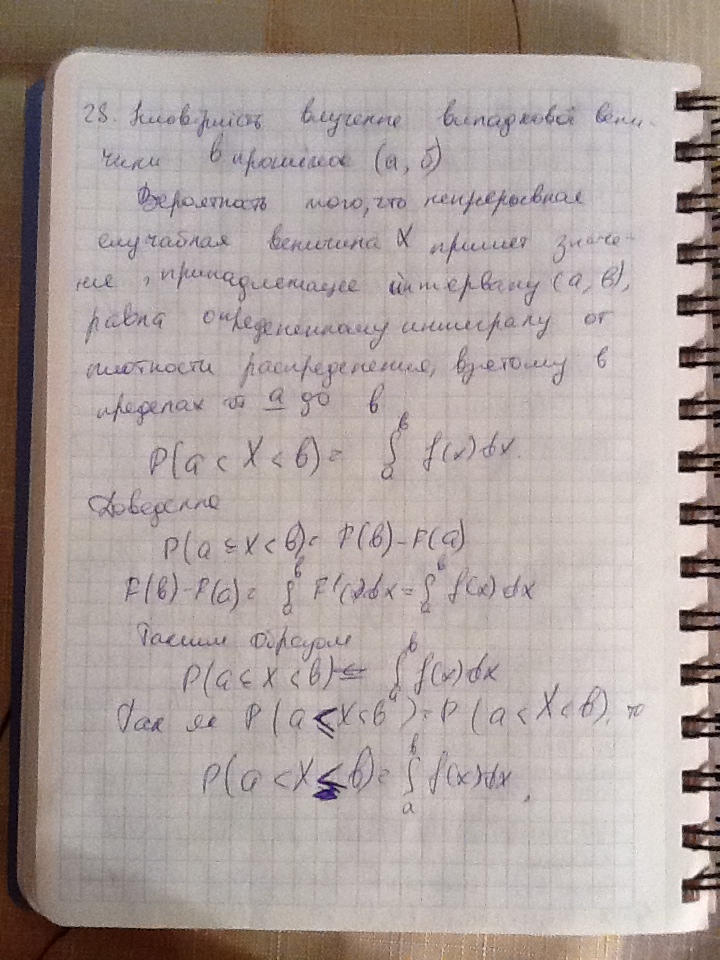 28. Ймовірність влучення випадкової вели-
чини в проміжок (a, b)
Вероятность того, что непрерывная
случайная величина X примет значе-
ние, принадлежащее интервалу (a, b),
равна определенному интегралу от
плотности распределения, взятому в
пределах от a до b
P(a < X < b) = ∫_a^b f(x)dx.
Доведення
P(a ≤ X < b) = F(b) - F(a)
F(b) - F(a) = ∫_a^b F'(x)dx = ∫_a^b f(x)dx
P(a ≤ X < b) = ∫_a^b f(x)dx
Так як P(a ≤ X < b) = P(a < X < b), то
P(a < X < b) = ∫_a^b f(x)dx,